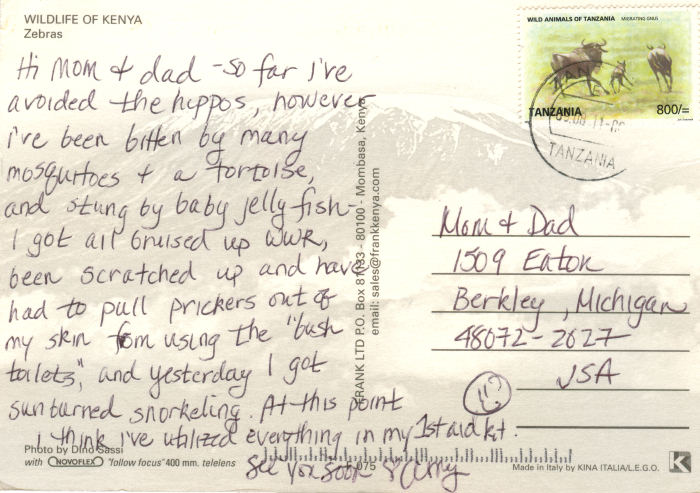 WILDLIFE OF KENYA
Zebras
Hi Mom & dad - so far i've
avoided the hippos, however
i've been bitten by many
mosquitoes & a tortoise,
and stung by baby jelly fish-
I got all bruised up WWR,
been scratched up and have
had to pull prickers out of
my skin from using the "bush
toilets," and yesterday I got
sunburned snorkeling. At this point
I think i've utilized everything in my 1st aid kit.
See you soon
Photo by Dino Sassi
with NOVOFLEX "follow focus" 400 mm. telelens
FRANK LTD P.O. Box 81133 - 80100 - Mombasa, Kenya
email: sales@frankkenya.com
075
WILD ANIMALS OF TANZANIA MIGRATING GNUS
TANZANIA 800/=
TANZANIA
Mom & Dad
1509 Eaton
Berkley, Michigan
48072-2627
USA
Made in Italy by KINA ITALIA/L.E.G.O.
K